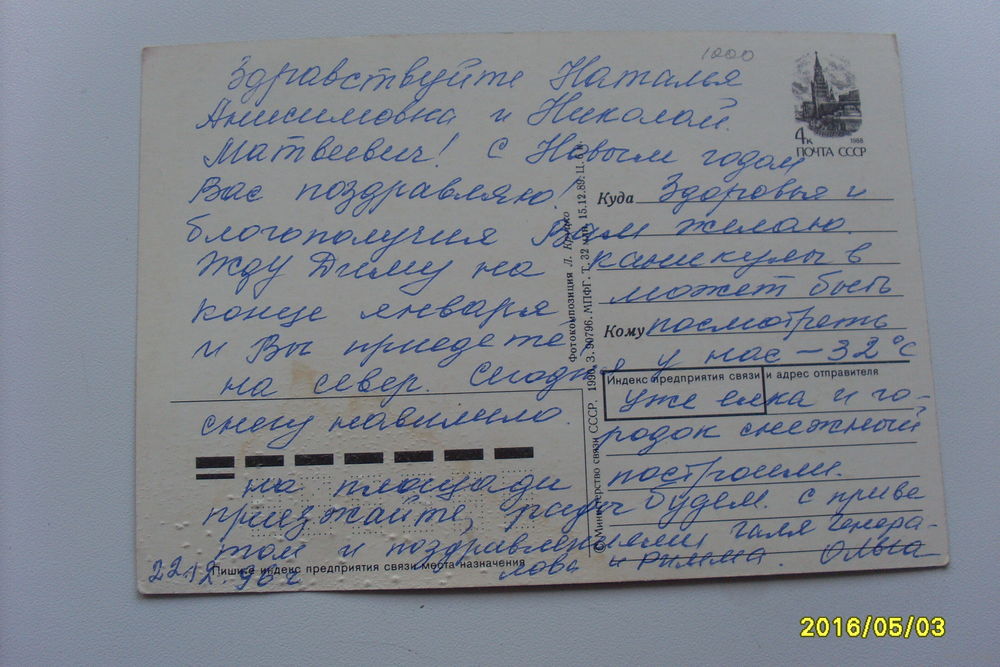 1000
Здравствуйте Наталья
Анисимовна и Николай
Матвеевич! С Новым годом
Вас поздравляю! Здоровья и
благополучия Вам желаю.
Жду Диму на каникулы в
конце января может быть
и Вы приедете посмотреть
на север. Сегодня у нас -32°С
снегу навалило уже елка и го-
родок снежный
на площади построили.
приезжайте, рады будем. С приве
том и поздравлениями Галя Генера-
лова и Римма. Ольга
22.12.90г
4к
1988
ПОЧТА СССР
Куда
Кому
Индекс предприятия связи и адрес отправителя
Пишите индекс предприятия связи места назначения
Фотокомпозиция Л. Круцко
© Министерство связи СССР. 1990. З. 90796. МПФГ. Т. 32 млн. 15.12.89. Ц. 6 к.